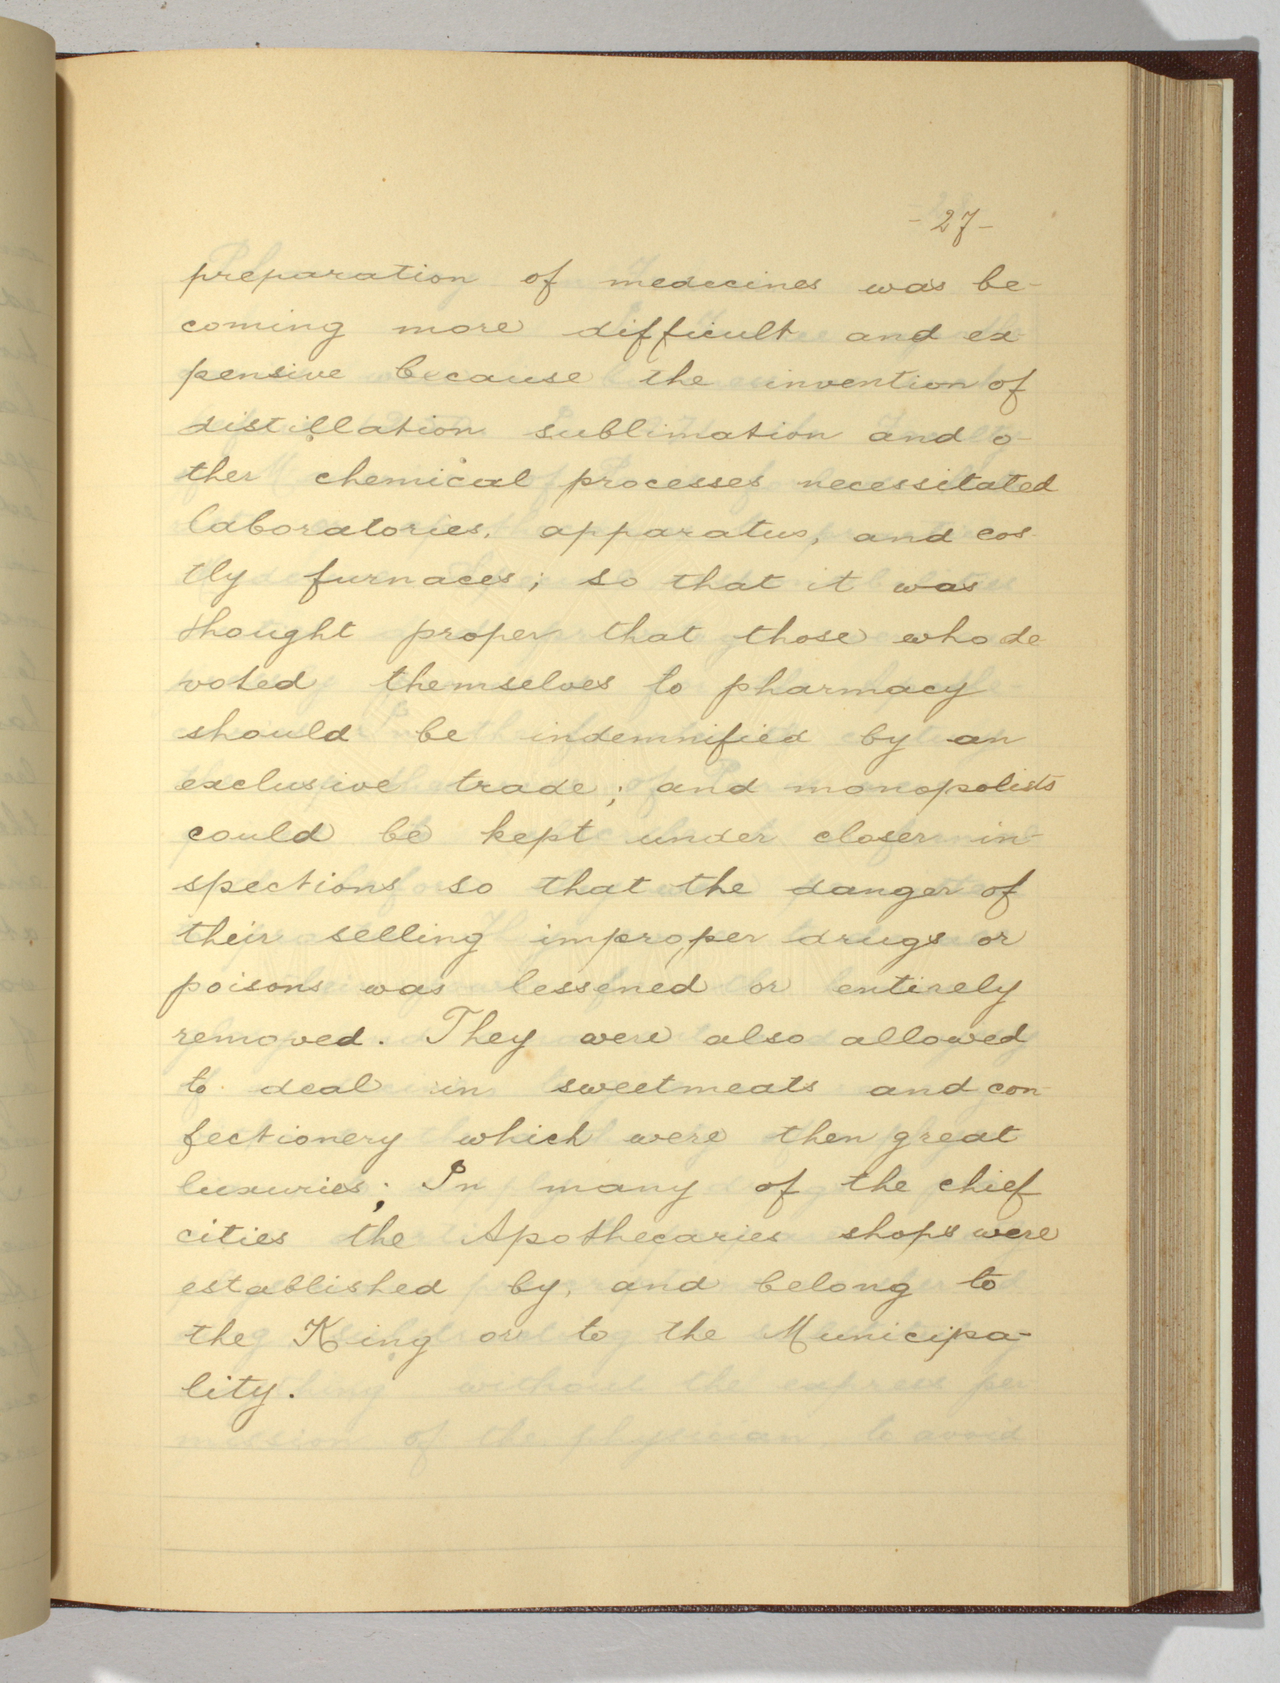 - 27 -
preparation of medecines was be-
coming more difficult and ex
pensive because the invention of
distillation sublimation and o-
ther chemical processes necessitated
laboratories, apparatus, and cos-
tly furnaces; so that it was
thought proper that those who de
voted themselves to pharmacy
should be indemnified by an
exclusive trade; and monopolists
could be kept under closer in-
spections so that the danger of
their selling improper drugs or
poisons was lessened or entirely
removed. They were also allowed
to deal in sweetmeats and con-
fectionery which were then great
luxuries; In many of the chief
cities the Apothecaries shops were
established by, and belong to
the King or to the Municipa-
lity.